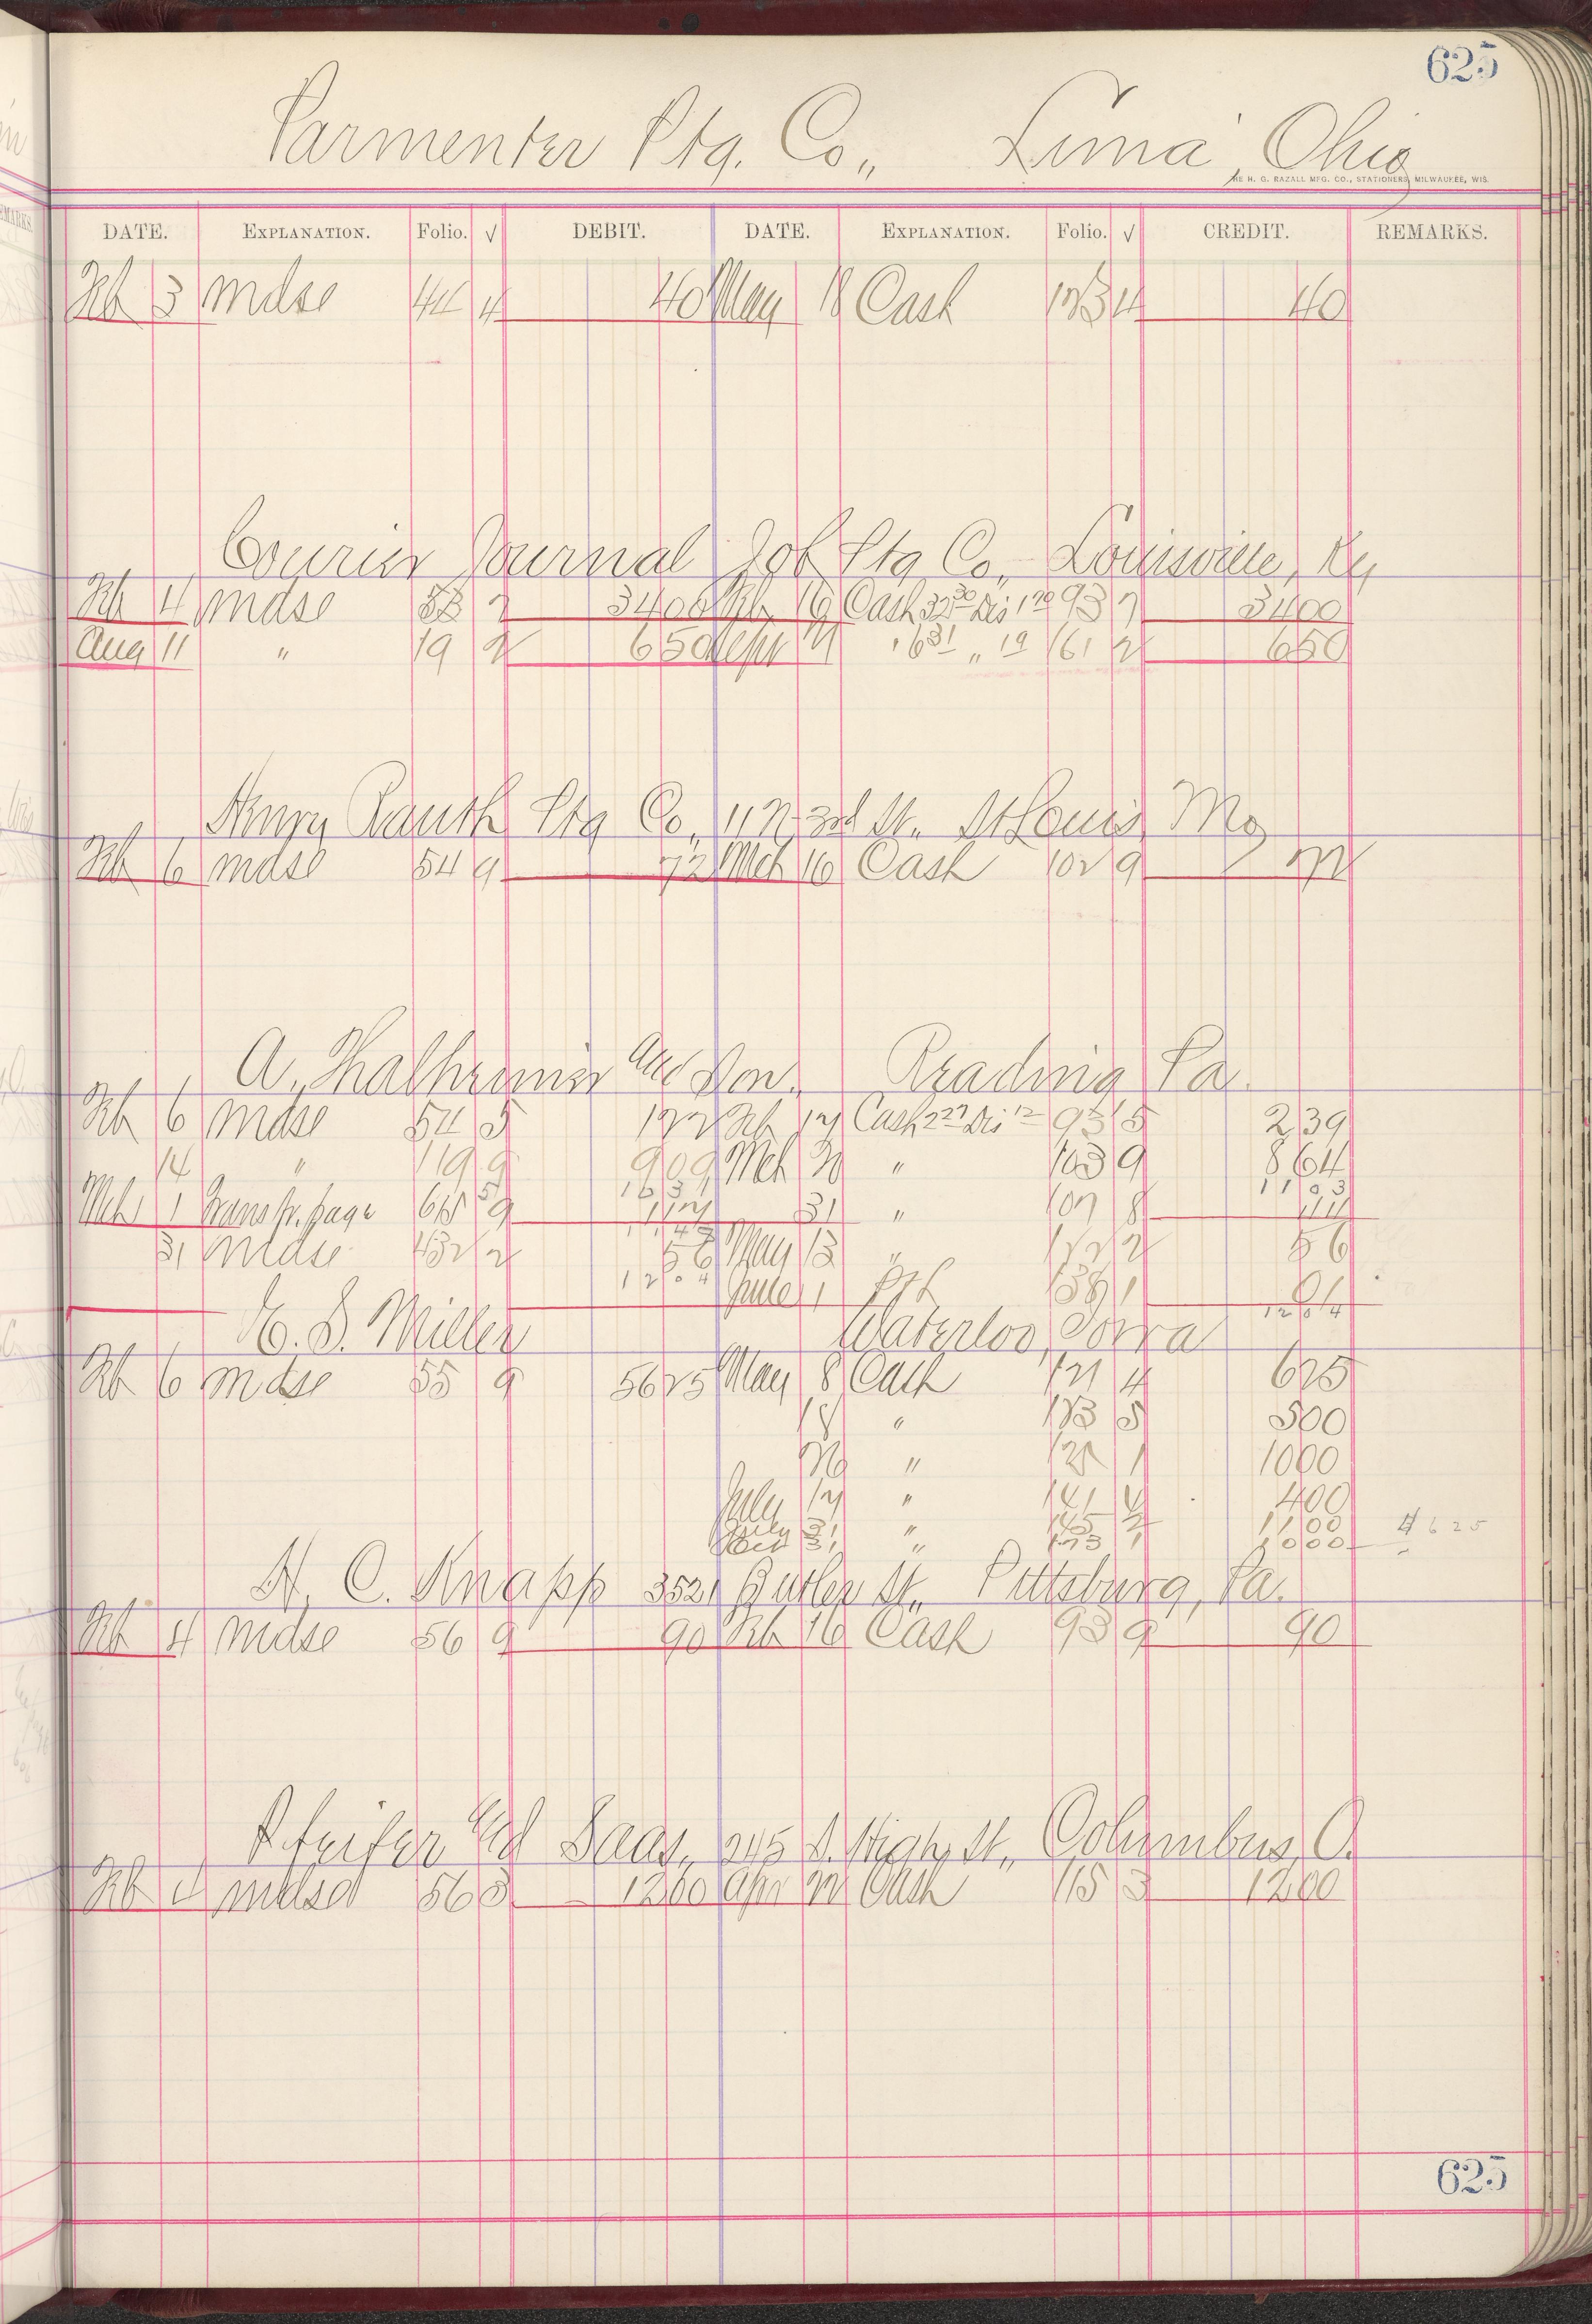 625
Parmenter Ptg. Co., Lima, Ohio
THE H. G. RAZALL MFG. CO., STATIONERS, MILWAUKEE, WIS.
DATE. EXPLANATION. Folio. √ DEBIT. DATE. EXPLANATION. Folio. √ CREDIT. REMARKS.
Feb 3 mdse 44 4 40 May 18 Cash 123 4 40
Courier Journal Job Ptg Co., Louisville, Ky
Feb 4 mdse 53 7 3400 Feb 16 Cash 32 30 Dis 1 70 93 7 3400
Aug 11 " 19 2 650 Sept 21 " 6 31 " 19 161 2 650
Henry Rauth Ptg Co, 11 N. 3rd St. St Louis, Mo
Feb 6 mdse 54 9 72 Mch 16 Cash 102 9 72
A. Thalheimer and Son, Reading Pa.
Feb 6 mdse 54 5 122 Feb 17 Cash 2 27 Dis 12 93 5 239
14 " 119 9 909 Mch 20 " 103 9 864
Mch 1 Transfr. page 615 9 117 31 " 107 8 44
31 mdse 432 2 56 May 13 " 122 2 56
1204 June 1 131 1 01
1204
E. S. Miller Waterloo, Iowa
Feb 6 mdse 55 9 5625 May 8 Cash 121 4 625
18 " 123 5 500
" 1 1000
July 17 " 141 4 400
July 31 " 145 2 1100
Oct 31 " 173 1 1000 4625
H. C. Knapp 3521 Butler St., Pittsburg, Pa.
Feb 4 mdse 56 9 90 Feb 16 Cash 93 9 90
Pfeifer and Saas, 245 S. High St., Columbus, O.
Feb 4 mdse 56 3 1260 Apr 22 Cash 115 3 1260
625